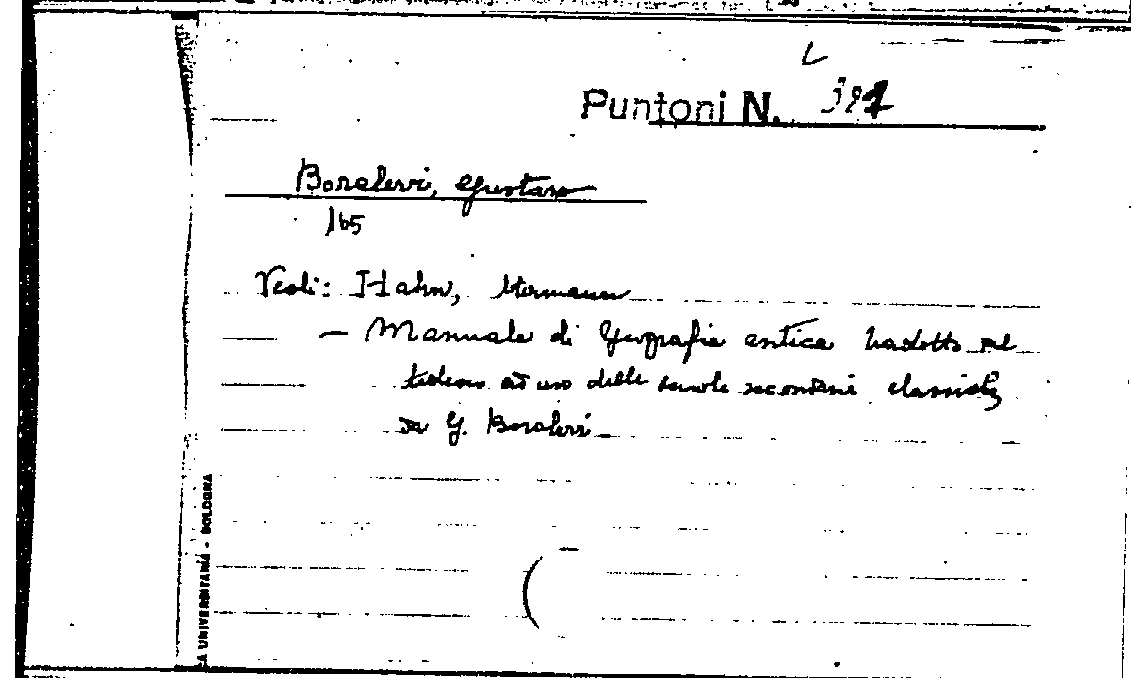 Puntoni N.
Boralevi, Gustavo
165
Vedi: Hahn, Hermann
— Manuale di geografia antica tradotto dal
tedesco ad uso delle scuole secondarie classiche
da G. Boralevi
A UNIVERSITARIA - BOLOGNA